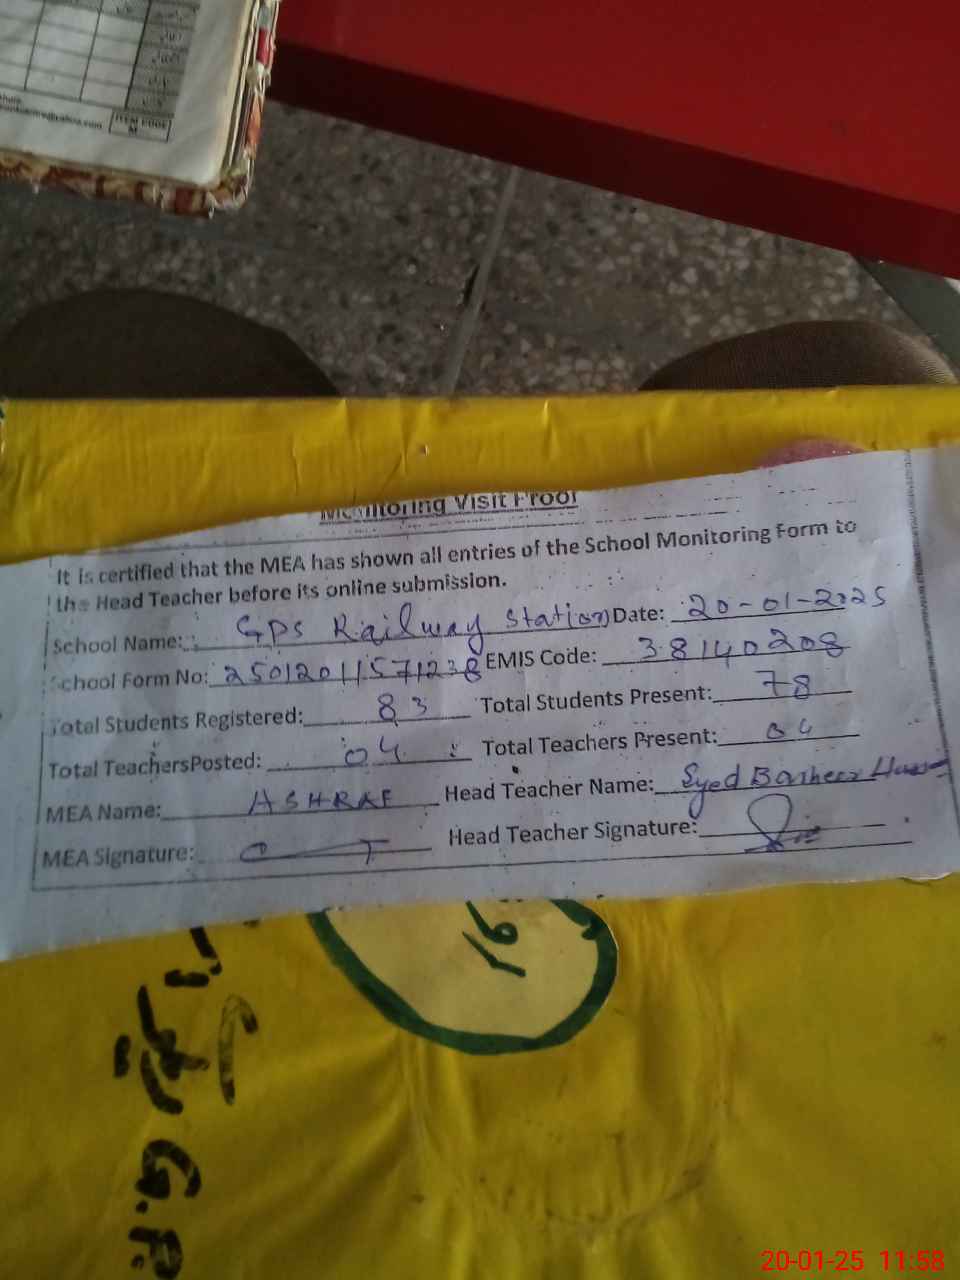 ITEM CODE
M
Monitoring Visit Proof
It is certified that the MEA has shown all entries of the School Monitoring Form to
the Head Teacher before its online submission.
School Name: GPS Railway Station Date: 20-01-2025
School Form No: 25012011571238 EMIS Code: 38140208
Total Students Registered: 83 Total Students Present: 78
Total TeachersPosted: 04 Total Teachers Present: 04
MEA Name: ASHRAF Head Teacher Name: Syed Basheer
MEA Signature: Head Teacher Signature:
G.P.
20-01-25 11:58